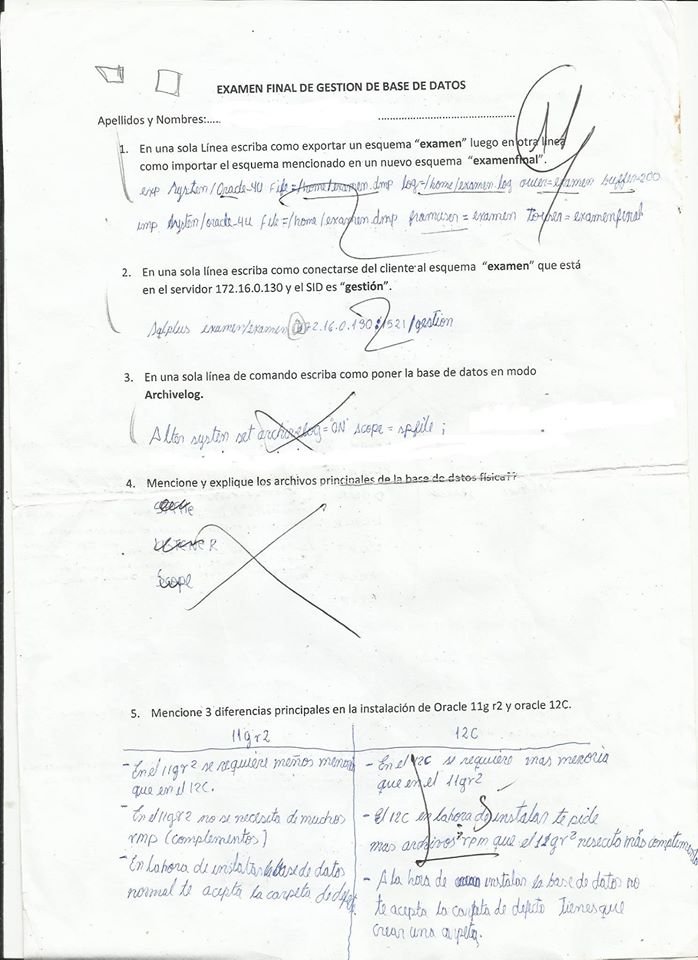 EXAMEN FINAL DE GESTION DE BASE DE DATOS
Apellidos y Nombres:.....
1. En una sola Línea escriba como exportar un esquema "examen" luego en otra línea
como importar el esquema mencionado en un nuevo esquema "examenfinal".
exp system/Oracle_4U File=/home/examen.dmp log=/home/examen.log owner=examen buffer=200
imp system/oracle_4U File=/home/examen.dmp fromuser=examen touser=examenfinal
2. En una sola línea escriba como conectarse del cliente al esquema "examen" que está
en el servidor 172.16.0.130 y el SID es "gestión".
Sqlplus examen/examen@172.16.0.130:1521/gestion
3. En una sola línea de comando escriba como poner la base de datos en modo
Archivelog.
Alter system set archivelog="ON" scope=spfile;
4. Mencione y explique los archivos principales de la base de datos física??
Scope
5. Mencione 3 diferencias principales en la instalación de Oracle 11g r2 y oracle 12C.
11gr2 12C
- En el 11gr2 se requiere menos memoria
que en el 12C.
- En el 11gr2 no se necesita de muchos
rmp (complementos)
- En la hora de instalar la base de datos
normal te acepta la carpeta de
- En el 12C se requiere mas memoria
que en el 11gr2
- El 12C en la hora de instalar te pide
mas archivos rpm que el 11gr2 mas
- A la hora de instalar la base de datos no
te acepta la carpeta de defecto Tienes que
crear una carpeta.